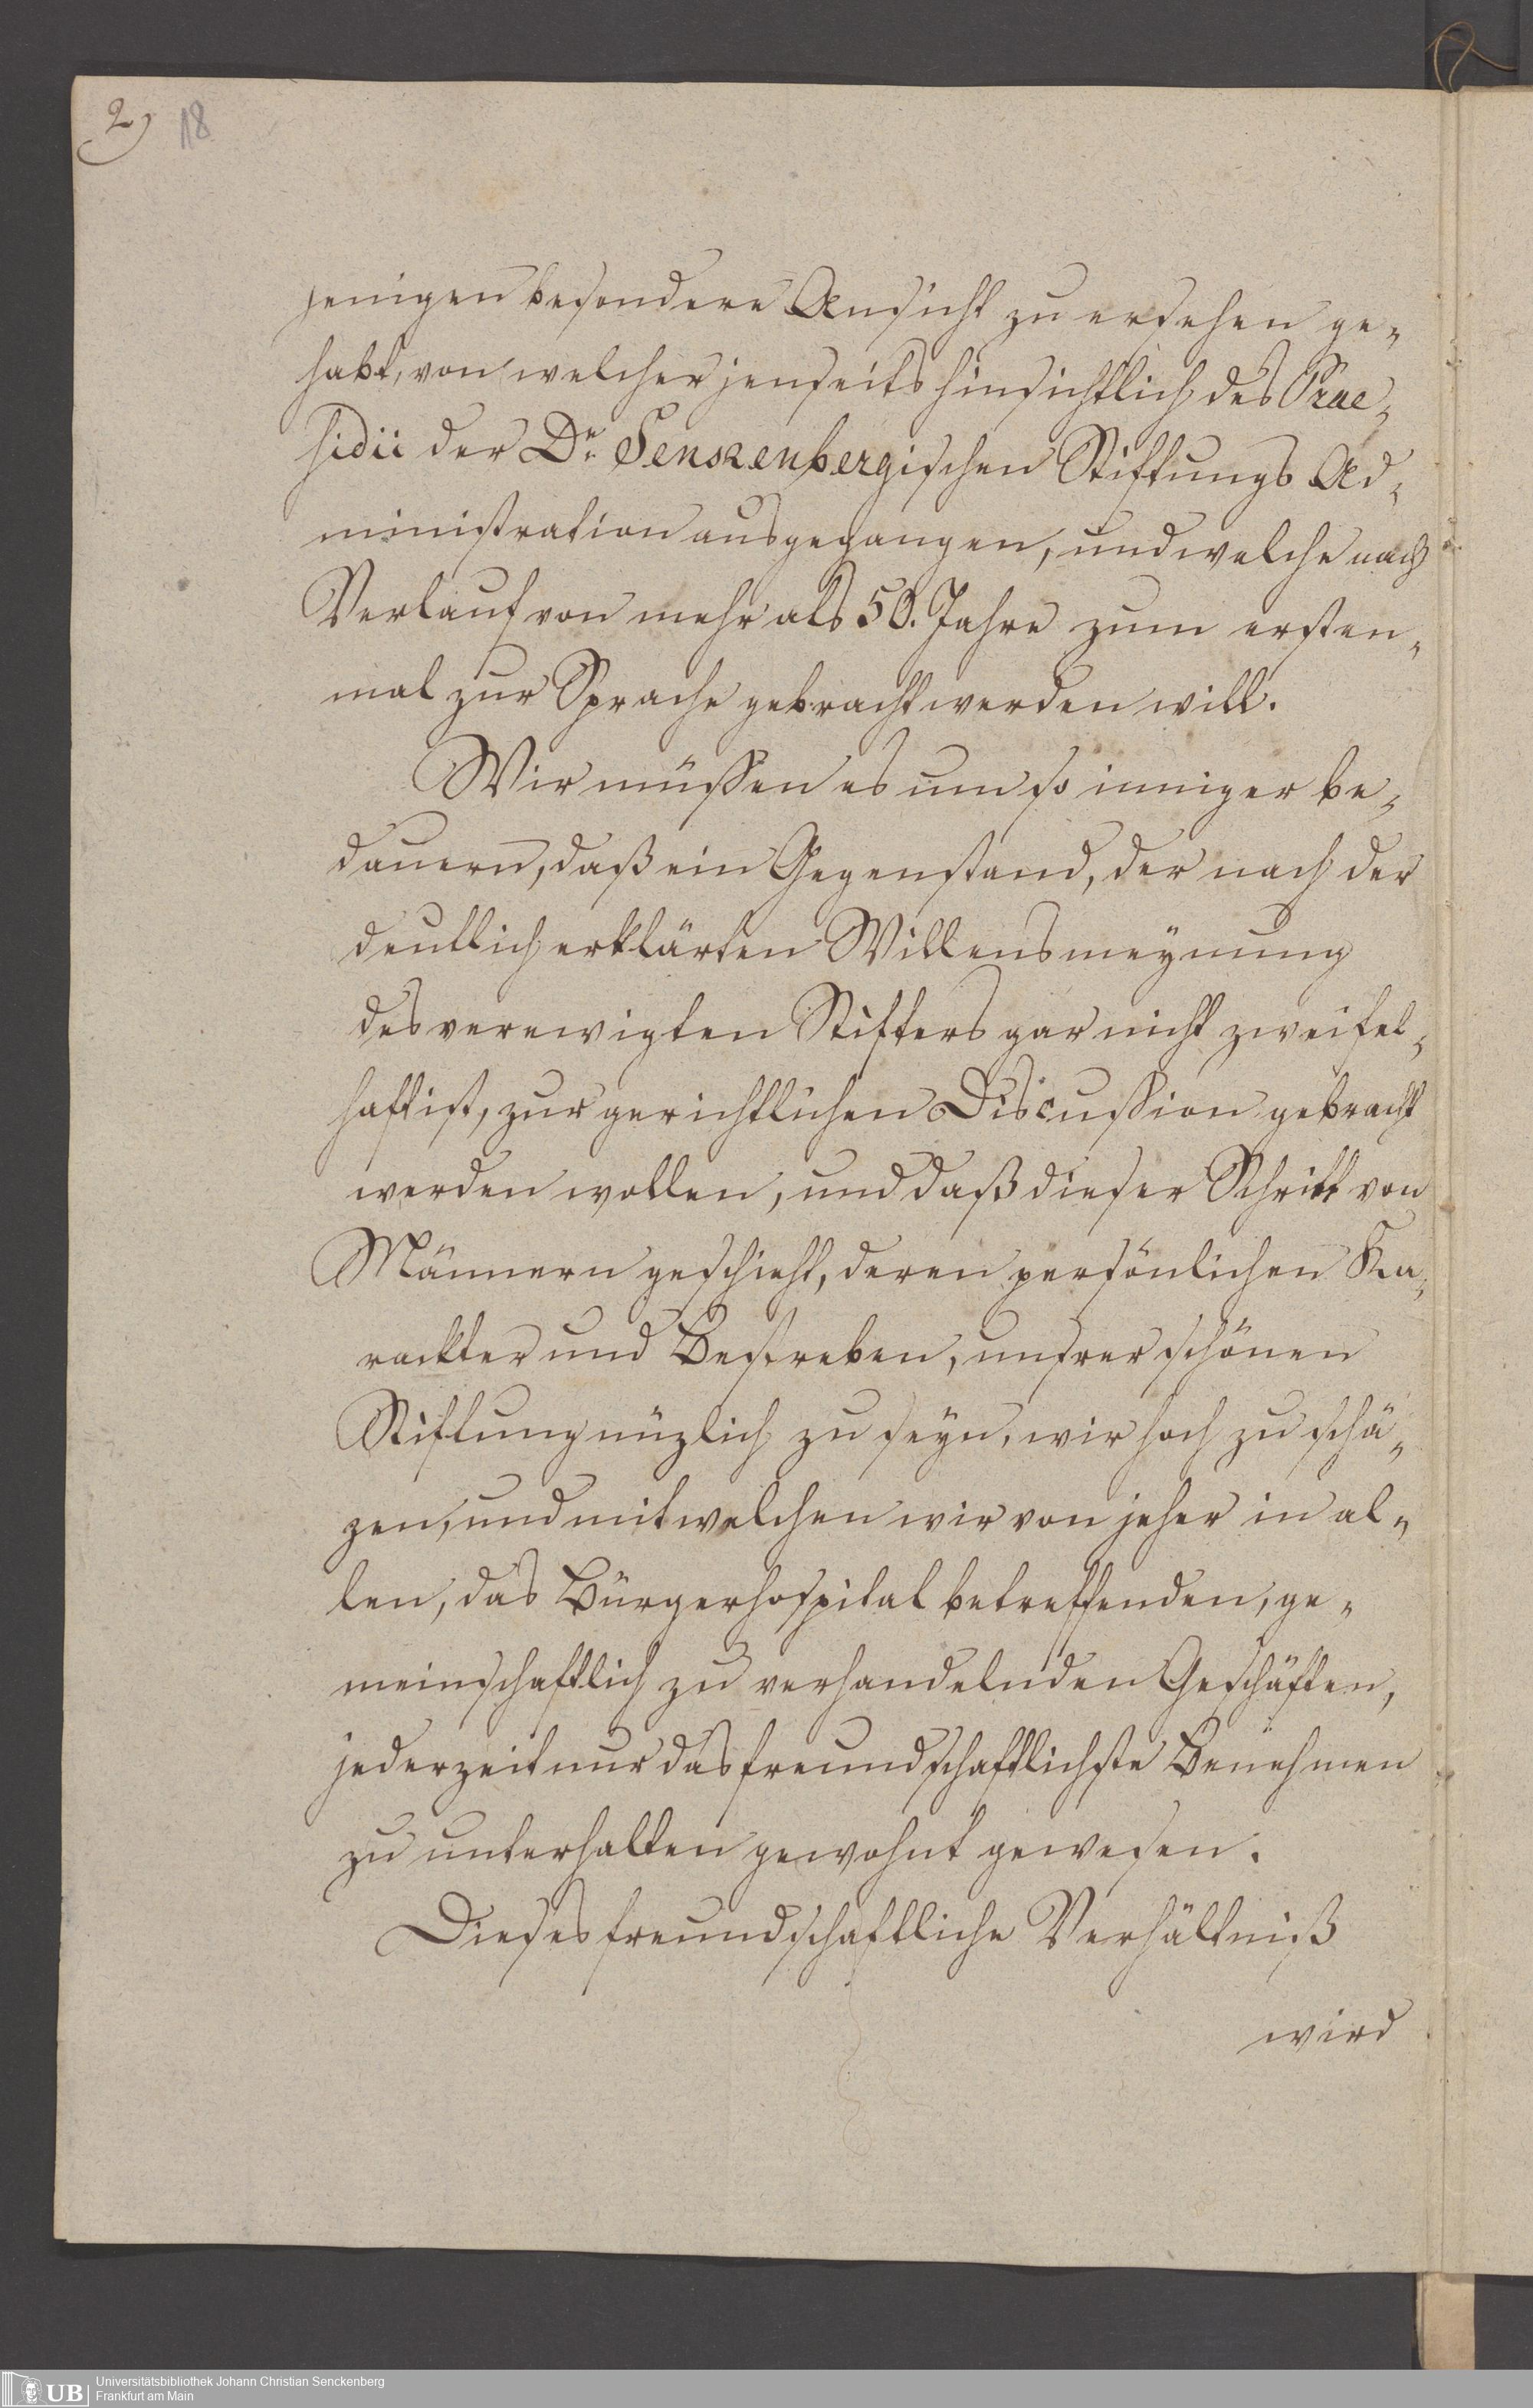 2) 18
jenigen besondere Ansicht zu ersehen ge-
habt, von welcher jenseits hinsichtlich des Prae-
sidii der Dr. Senkenbergischen Stiftungs Ad-
ministration ausgegangen, und welche nach
Verlauf von mehr als 50. Jahre zum ersten-
mal zur Sprache gebracht werden will.
Wir müssen es um so inniger be-
dauern, daß ein Gegenstand, der nach der
deutlich erklärten Willensmeynung
des verewigten Stifters gar nicht zweifel-
haft ist, zur gerichtlichen Discussion gebracht
werden wollen, und daß dieser Schritt von
Männern geschieht, deren persönlichen Ka-
rackter und Bestreben, unsrer schönen
Stiftung nüzlich zu seyn, wir hoch zu schä-
zen, und mit welchen wir von jeher in al-
len, das Bürgerhospital betreffenden, ge-
meinschaftlich zu verhandelnden Geschäften,
jederzeit nur das freundschaftlichste Benehmen
zu unterhalten gewohnt gewesen.
Dieses freundschaftliche Verhältniß
wird
UB
Universitätsbibliothek Johann Christian Senckenberg
Frankfurt am Main